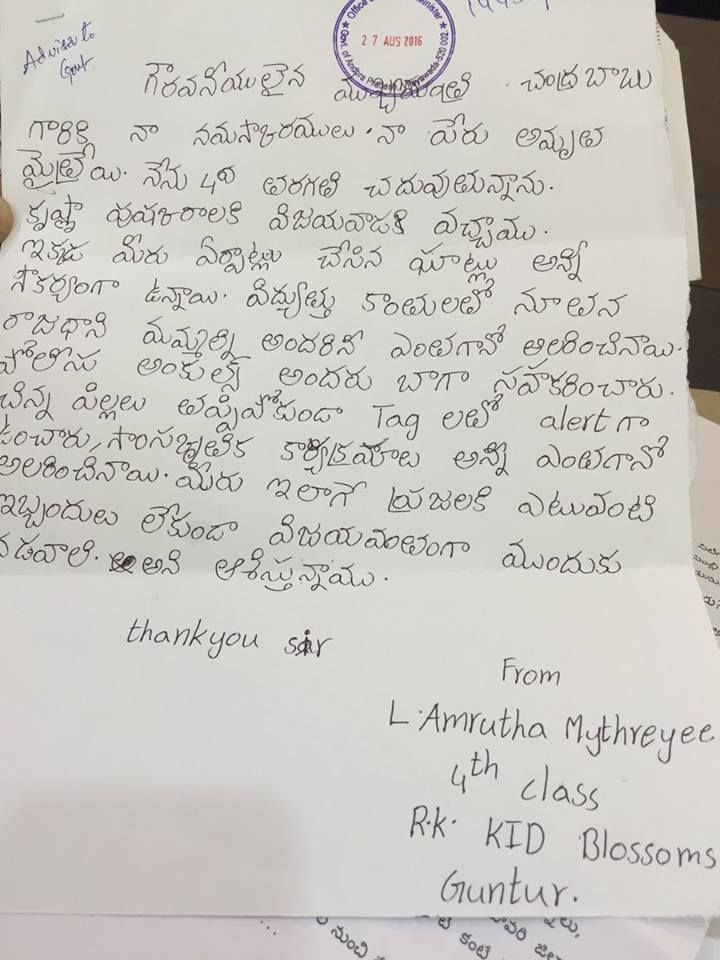 Office Minister
27 AUG 2016
Govt. of Andhra Pradesh Vijayawada-520 002
Adviser to
Govt
గౌరవనీయులైన ముఖ్యమంత్రి చంద్రబాబు
గారికి నా నమస్కారములు. నా పేరు అమృత
మైత్రేయి. నేను 4వ తరగతి చదువుతున్నాను.
కృష్ణా పుష్కరాలకి విజయవాడకి వచ్చాము.
ఇక్కడ మీరు ఏర్పాట్లు చేసిన ఘాట్లు అన్నీ
సౌకర్యంగా ఉన్నాయి. విద్యుత్తు కాంతులతో నూతన
రాజధాని మమ్మల్ని అందరినీ ఎంతగానో అలరించినాయి.
పోలీసు అంకుల్స్ అందరు బాగా సహకరించారు.
చిన్న పిల్లలు తప్పిపోకుండా Tag లతో alert గా
ఉంచారు, సాంస్కృతిక కార్యక్రమాలు అన్నీ ఎంతగానో
అలరించినాయి. మీరు ఇలాగే ప్రజలకి ఎటువంటి
ఇబ్బందులు లేకుండా విజయవంతంగా ముందుకు
నడవాలి. అని ఆశిస్తున్నాము.
thankyou sir
From
L. Amrutha Mythreyee
4th class
R.K. KID Blossoms
Guntur.